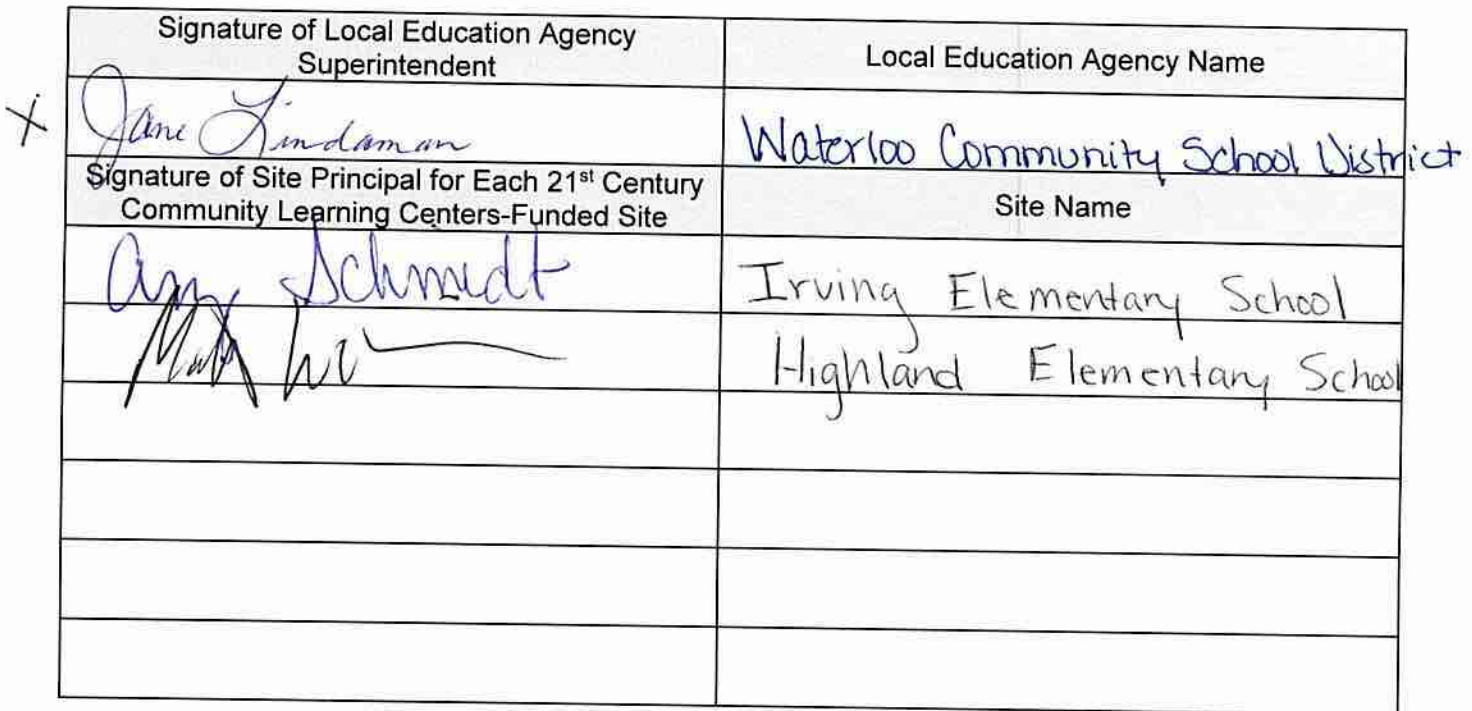 Signature of Local Education Agency
Superintendent
Local Education Agency Name
X
Jane Lindaman
Waterloo Community School District
Signature of Site Principal for Each 21st Century
Community Learning Centers-Funded Site
Site Name
Amy Schmidt
Irving Elementary School
Highland Elementary School